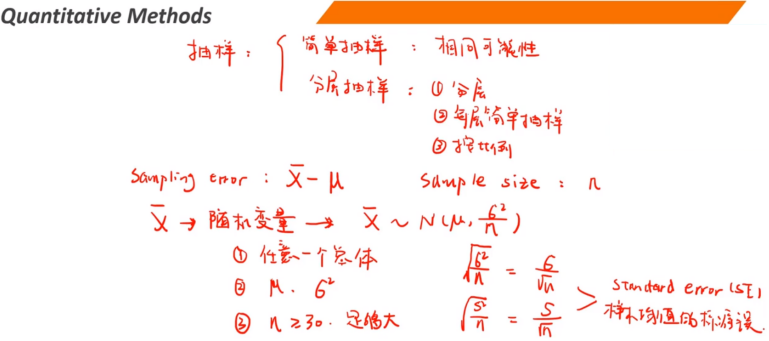 Quantitative Methods
抽样: { 简单抽样: 相同可能性
分层抽样: ① 分层
② 每层简单抽样
③ 按比例
Sampling error: X̄ − μ sample size: n
X̄ → 随机变量 → X̄ ~ N(μ, σ²/n)
① 任意一个总体
② μ. σ²
③ n ≥ 30. 足够大
√(σ²/n) = σ/√n
√(s²/n) = s/√n
> standard error (SE)
样本均值的标准误